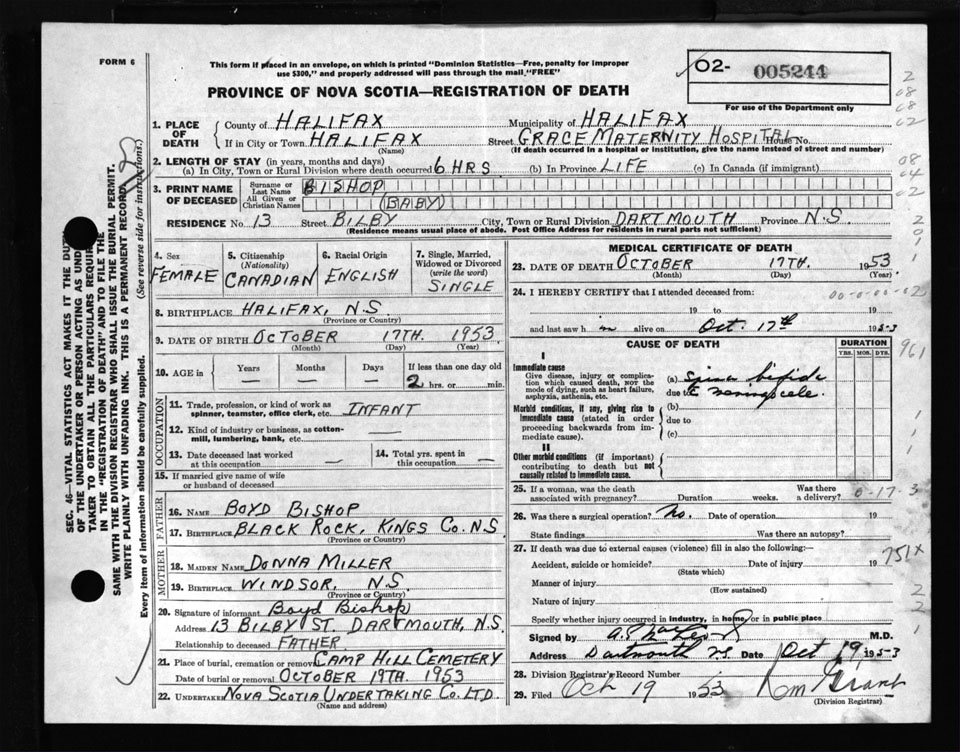 FORM 6
This form if placed in an envelope, on which is printed "Dominion Statistics—Free, penalty for improper
use $300," and properly addressed will pass through the mail "FREE"
02- 005244
For use of the Department only
PROVINCE OF NOVA SCOTIA—REGISTRATION OF DEATH
1. PLACE OF DEATH County of HALIFAX Municipality of HALIFAX
If in City or Town HALIFAX Street GRACE MATERNITY HOSPITAL House No.
(Name) (If death occurred in a hospital or institution, give the name instead of street and number)
2. LENGTH OF STAY (in years, months and days)
(a) In City, Town or Rural Division where death occurred 6 HRS (b) In Province LIFE (c) In Canada (if immigrant)
3. PRINT NAME OF DECEASED Surname or Last Name BISHOP
All Given or Christian Names (BABY)
RESIDENCE No. 13 Street BILBY City, Town or Rural Division DARTMOUTH Province N.S.
(Residence means usual place of abode. Post Office Address for residents in rural parts not sufficient)
4. Sex FEMALE
5. Citizenship (Nationality) CANADIAN
6. Racial Origin ENGLISH
7. Single, Married, Widowed or Divorced (write the word) SINGLE
8. BIRTHPLACE HALIFAX, N.S.
(Province or Country)
9. DATE OF BIRTH OCTOBER 17TH. 1953
(Month) (Day) (Year)
10. AGE in Years — Months — Days — If less than one day old 2 hrs. or min.
OCCUPATION
11. Trade, profession, or kind of work as spinner, teamster, office clerk, etc. INFANT
12. Kind of industry or business, as cotton-mill, lumbering, bank, etc. —
13. Date deceased last worked at this occupation —
14. Total yrs. spent in this occupation —
15. If married give name of wife or husband of deceased
FATHER
16. NAME BOYD BISHOP
17. BIRTHPLACE BLACK ROCK, KINGS CO. N.S
(Province or Country)
MOTHER
18. MAIDEN NAME DONNA MILLER
19. BIRTHPLACE WINDSOR, N.S
(Province or Country)
20. Signature of informant Boyd Bishop
Address 13 BILBY ST. DARTMOUTH, N.S.
Relationship to deceased FATHER
21. Place of burial, cremation or removal CAMP HILL CEMETERY
Date of burial or removal OCTOBER 19TH. 1953
22. UNDERTAKER NOVA SCOTIA UNDERTAKING CO. LTD.
(Name and address)
MEDICAL CERTIFICATE OF DEATH
23. DATE OF DEATH OCTOBER 17TH. 1953
(Month) (Day) (Year)
24. I HEREBY CERTIFY that I attended deceased from:
19 to 19
and last saw h alive on Oct. 17th 1953
CAUSE OF DEATH
DURATION
YRS. MOS. DYS.
I
Immediate cause
Give disease, injury or complication which caused death, NOT the mode of dying, such as heart failure, asphyxia, asthenia, etc.
(a) Spina bifida
due to meningocele.
Morbid conditions, if any, giving rise to immediate cause (stated in order proceeding backwards from immediate cause).
(b)
due to
(c)
II
Other morbid conditions (if important) contributing to death but not causally related to immediate cause.
25. If a woman, was the death associated with pregnancy? Duration weeks. Was there a delivery?
26. Was there a surgical operation? No. Date of operation 19
State findings Was there an autopsy?
27. If death was due to external causes (violence) fill in also the following:—
Accident, suicide or homicide? Date of injury 19
(State which)
Manner of injury
(How sustained)
Nature of injury
Specify whether injury occurred in industry, in home, or in public place
Signed by M.D.
Address Dartmouth N.S. Date Oct 19 1953
28. Division Registrar's Record Number
29. Filed Oct 19 1953
(Division Registrar)
SEC. 46—VITAL STATISTICS ACT MAKES IT THE DUTY
OF THE UNDERTAKER OR PERSON ACTING AS UNDER
TAKER TO OBTAIN ALL THE PARTICULARS REQUIRED
IN THE "REGISTRATION OF DEATH" AND TO FILE THE
SAME WITH THE DIVISION REGISTRAR WHO SHALL ISSUE THE BURIAL PERMIT.
WRITE PLAINLY WITH UNFADING INK. THIS IS A PERMANENT RECORD
Every item of information should be carefully supplied. (See reverse side for instructions.)
2
08
08
02
08
04
02
2
0
1
1
961
1
1
1
0-17-3
751X
2
2
1